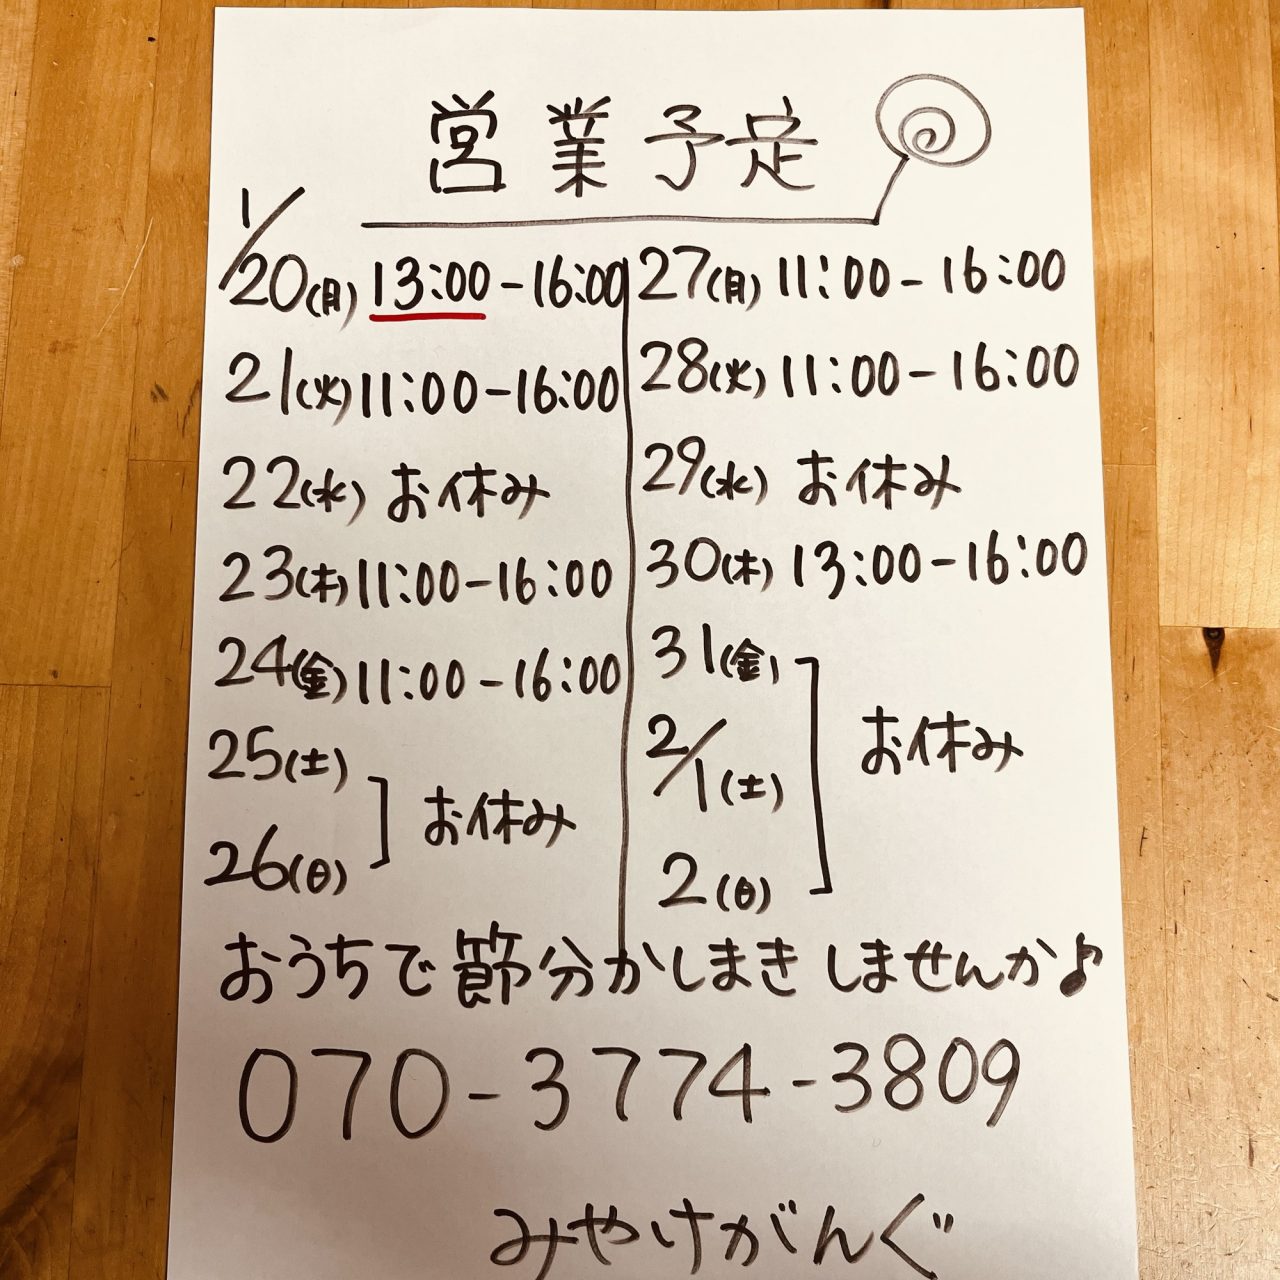 営業予定
1/20(月) 13:00-16:00
21(火) 11:00-16:00
22(水) お休み
23(木) 11:00-16:00
24(金) 11:00-16:00
25(土)
26(日)
お休み
27(月) 11:00-16:00
28(火) 11:00-16:00
29(水) お休み
30(木) 13:00-16:00
31(金)
2/1(土)
2(日)
お休み
おうちで節分かしまきしませんか♪
070-3774-3809
みやけがんぐ